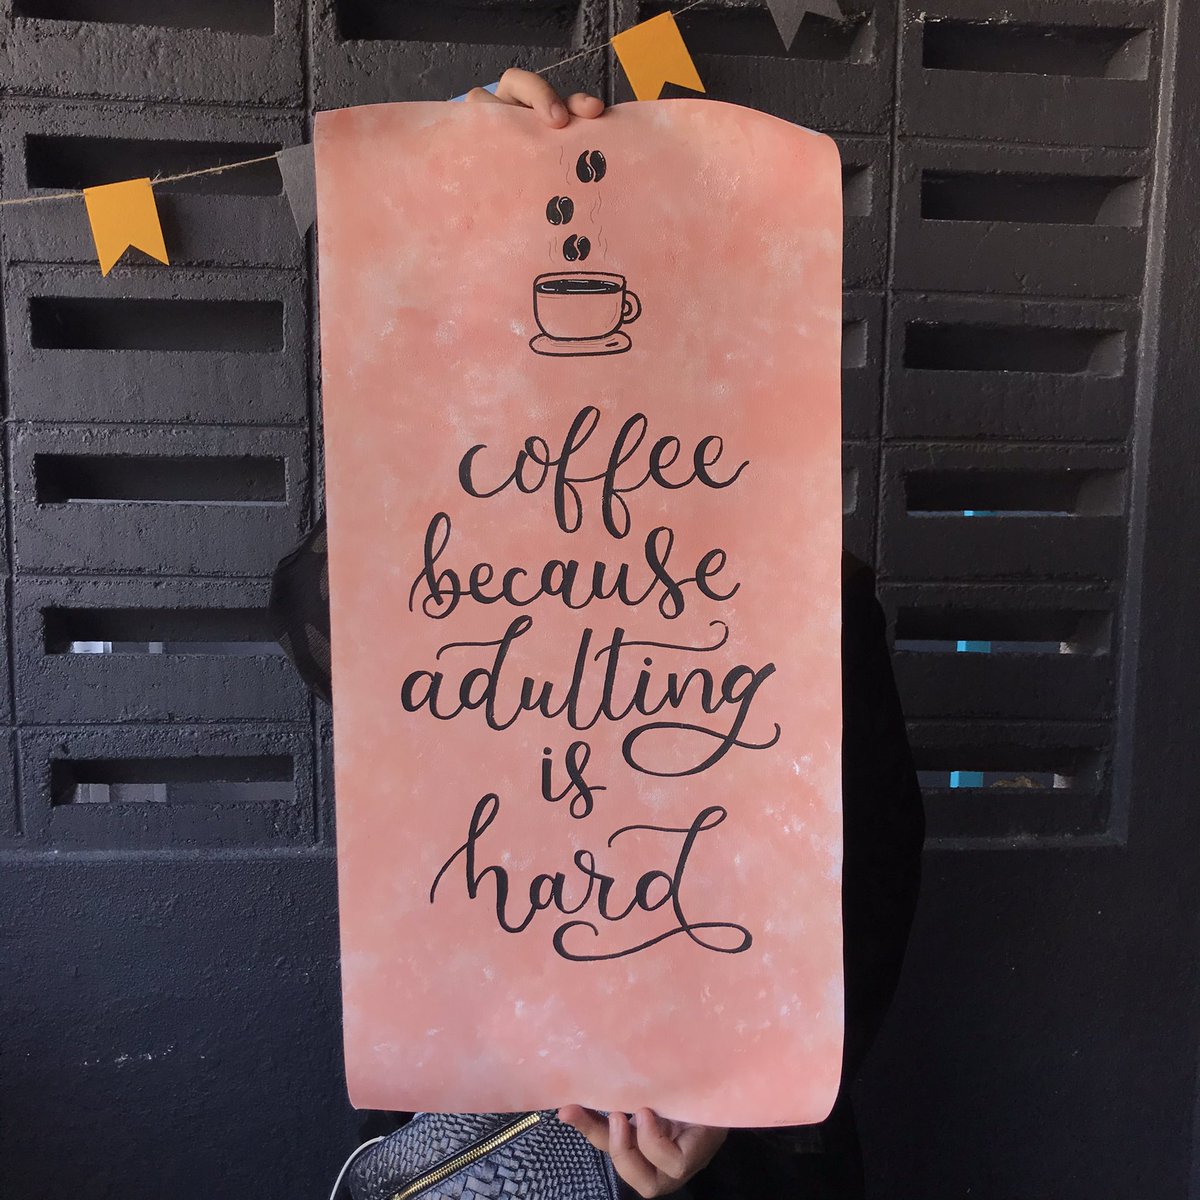 coffee
because
adulting
is
hard